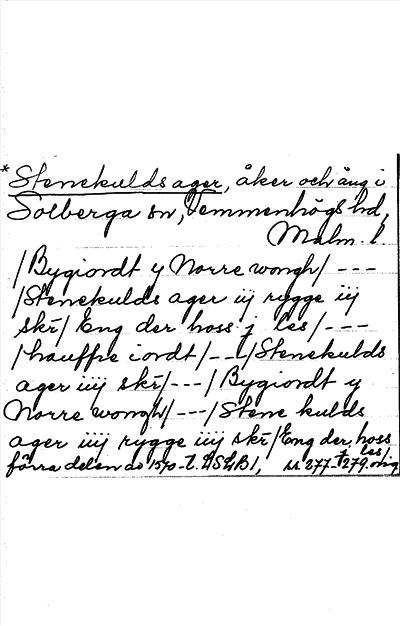 * Stenekulds ager, åker och äng i
Solberga sn, Vemmenhögs hd,
Malm. l.
/Bygiordt y Norre wongh/ ---
/Stenekulds ager iij rygge iij
skr/ Eng der hoss j les/ ---
/hauffre iordt/ --- /Stenekulds
ager iiij skr/ --- / Bygiordt y
Norre wongh/ --- /Stene kulds
ager iiij rygge iiij skr /Eng der hoss
j les/
förra delen av 1570-t. LSLB 1, ss 277-279. orig